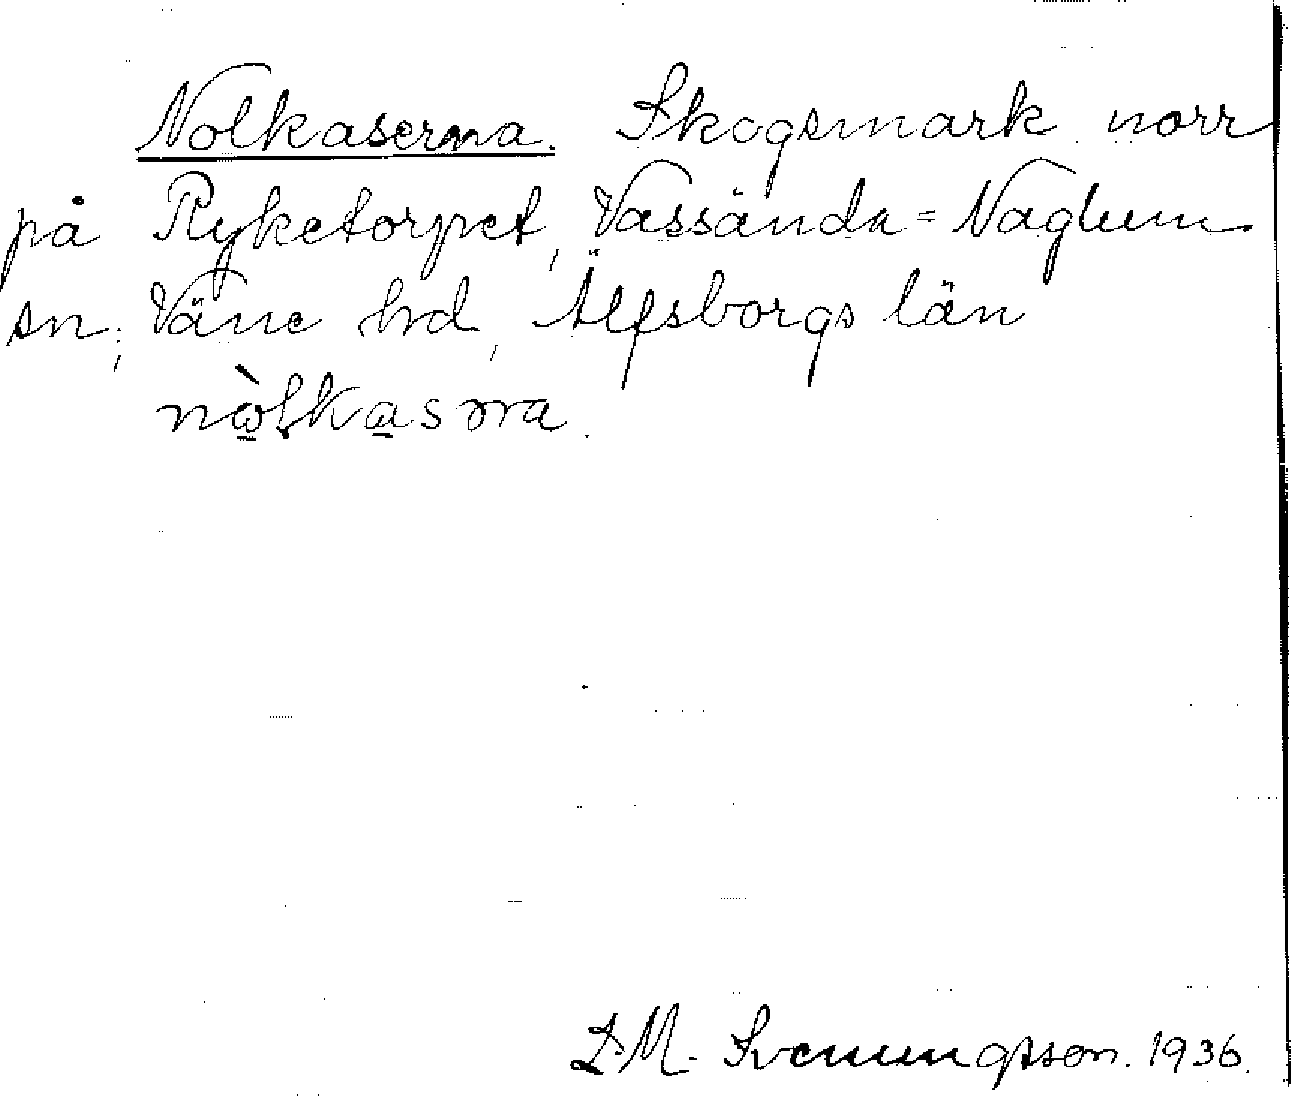 Nolkaserna. Skogsmark norr
på Ryketorpet, Vassända-Naglum
sn; Väne hrd, Älfsborgs län
nòlkasɔra.
L.M. Svenungsson. 1936.